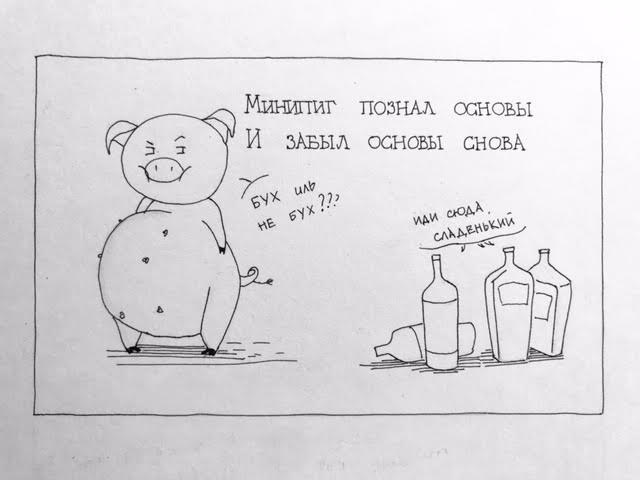 Минипиг познал основы
И забыл основы снова
Бух иль
не бух???
иди сюда,
сладенький